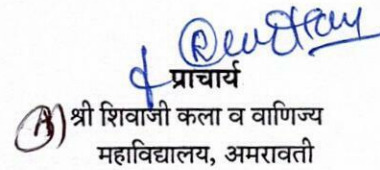 प्राचार्य
(A) श्री शिवाजी कला व वाणिज्य
महाविद्यालय, अमरावती